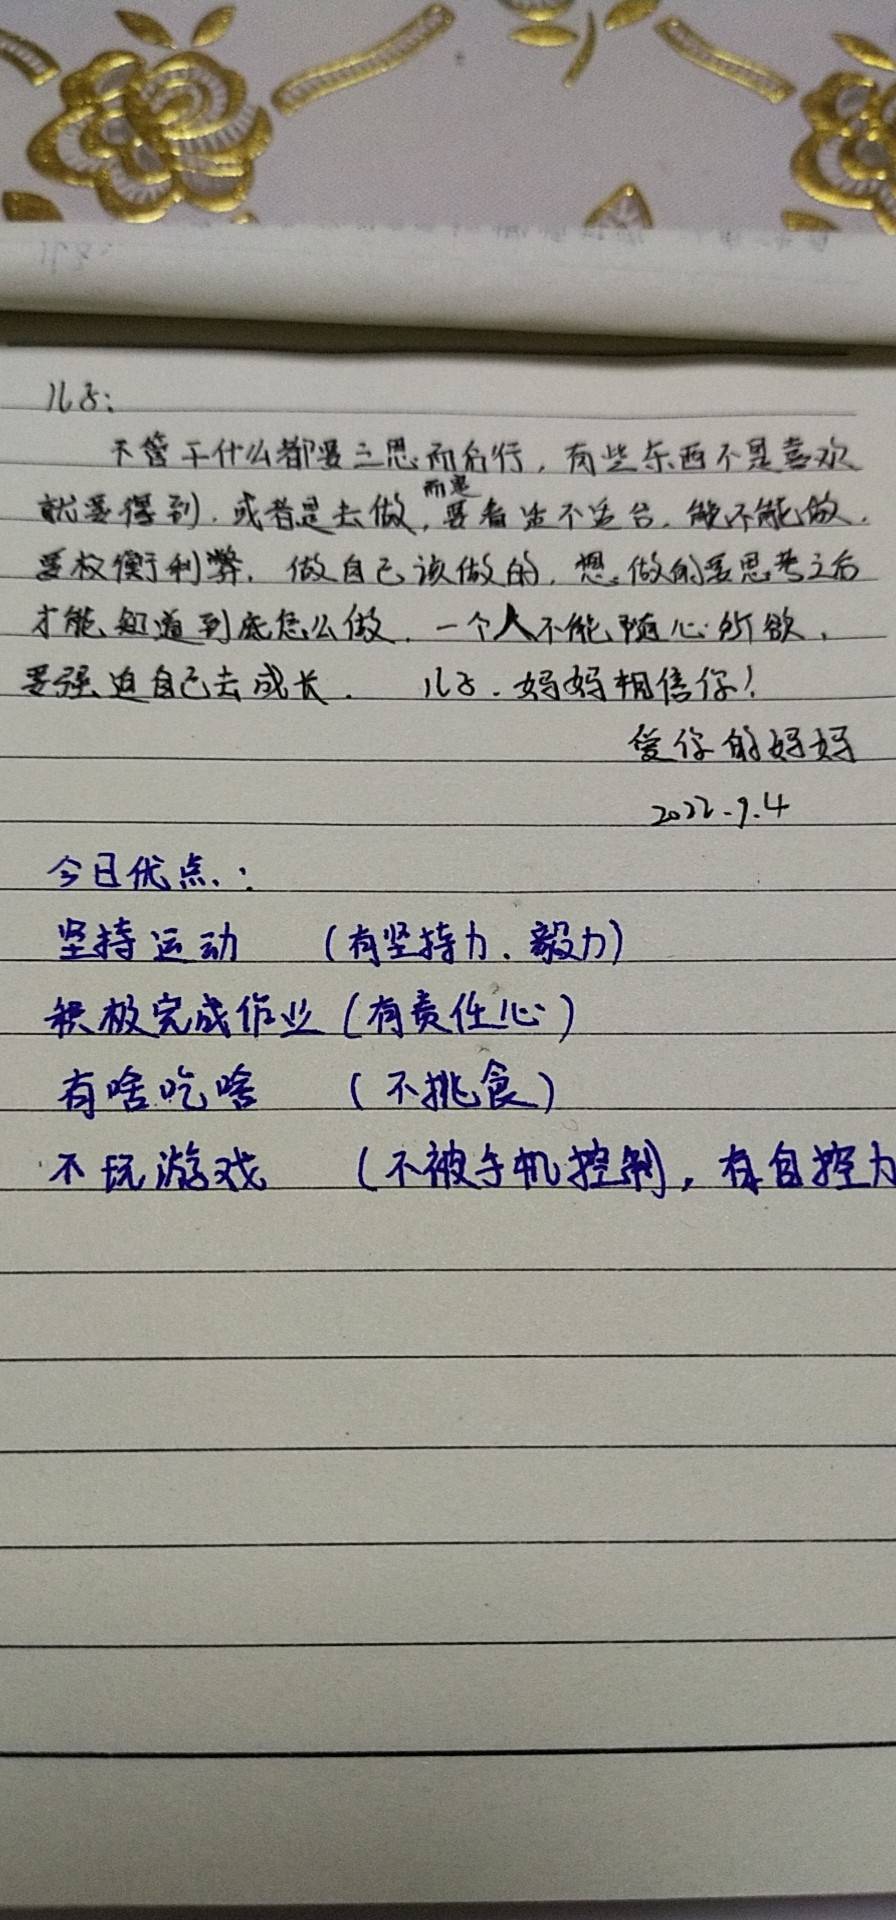 儿子：
不管干什么都要三思而后行，有些东西不是喜欢
就要得到，或者是去做，而是要看适不适合，能不能做，
要权衡利弊，做自己该做的，想做的要思考之后
才能知道到底怎么做，一个人不能随心所欲，
要强迫自己去成长． 儿子，妈妈相信你！
爱你的妈妈
2022.9.4
今日优点：
坚持运动 （有坚持力、毅力）
积极完成作业（有责任心）
有啥吃啥 （不挑食）
不玩游戏 （不被手机控制，有自控力